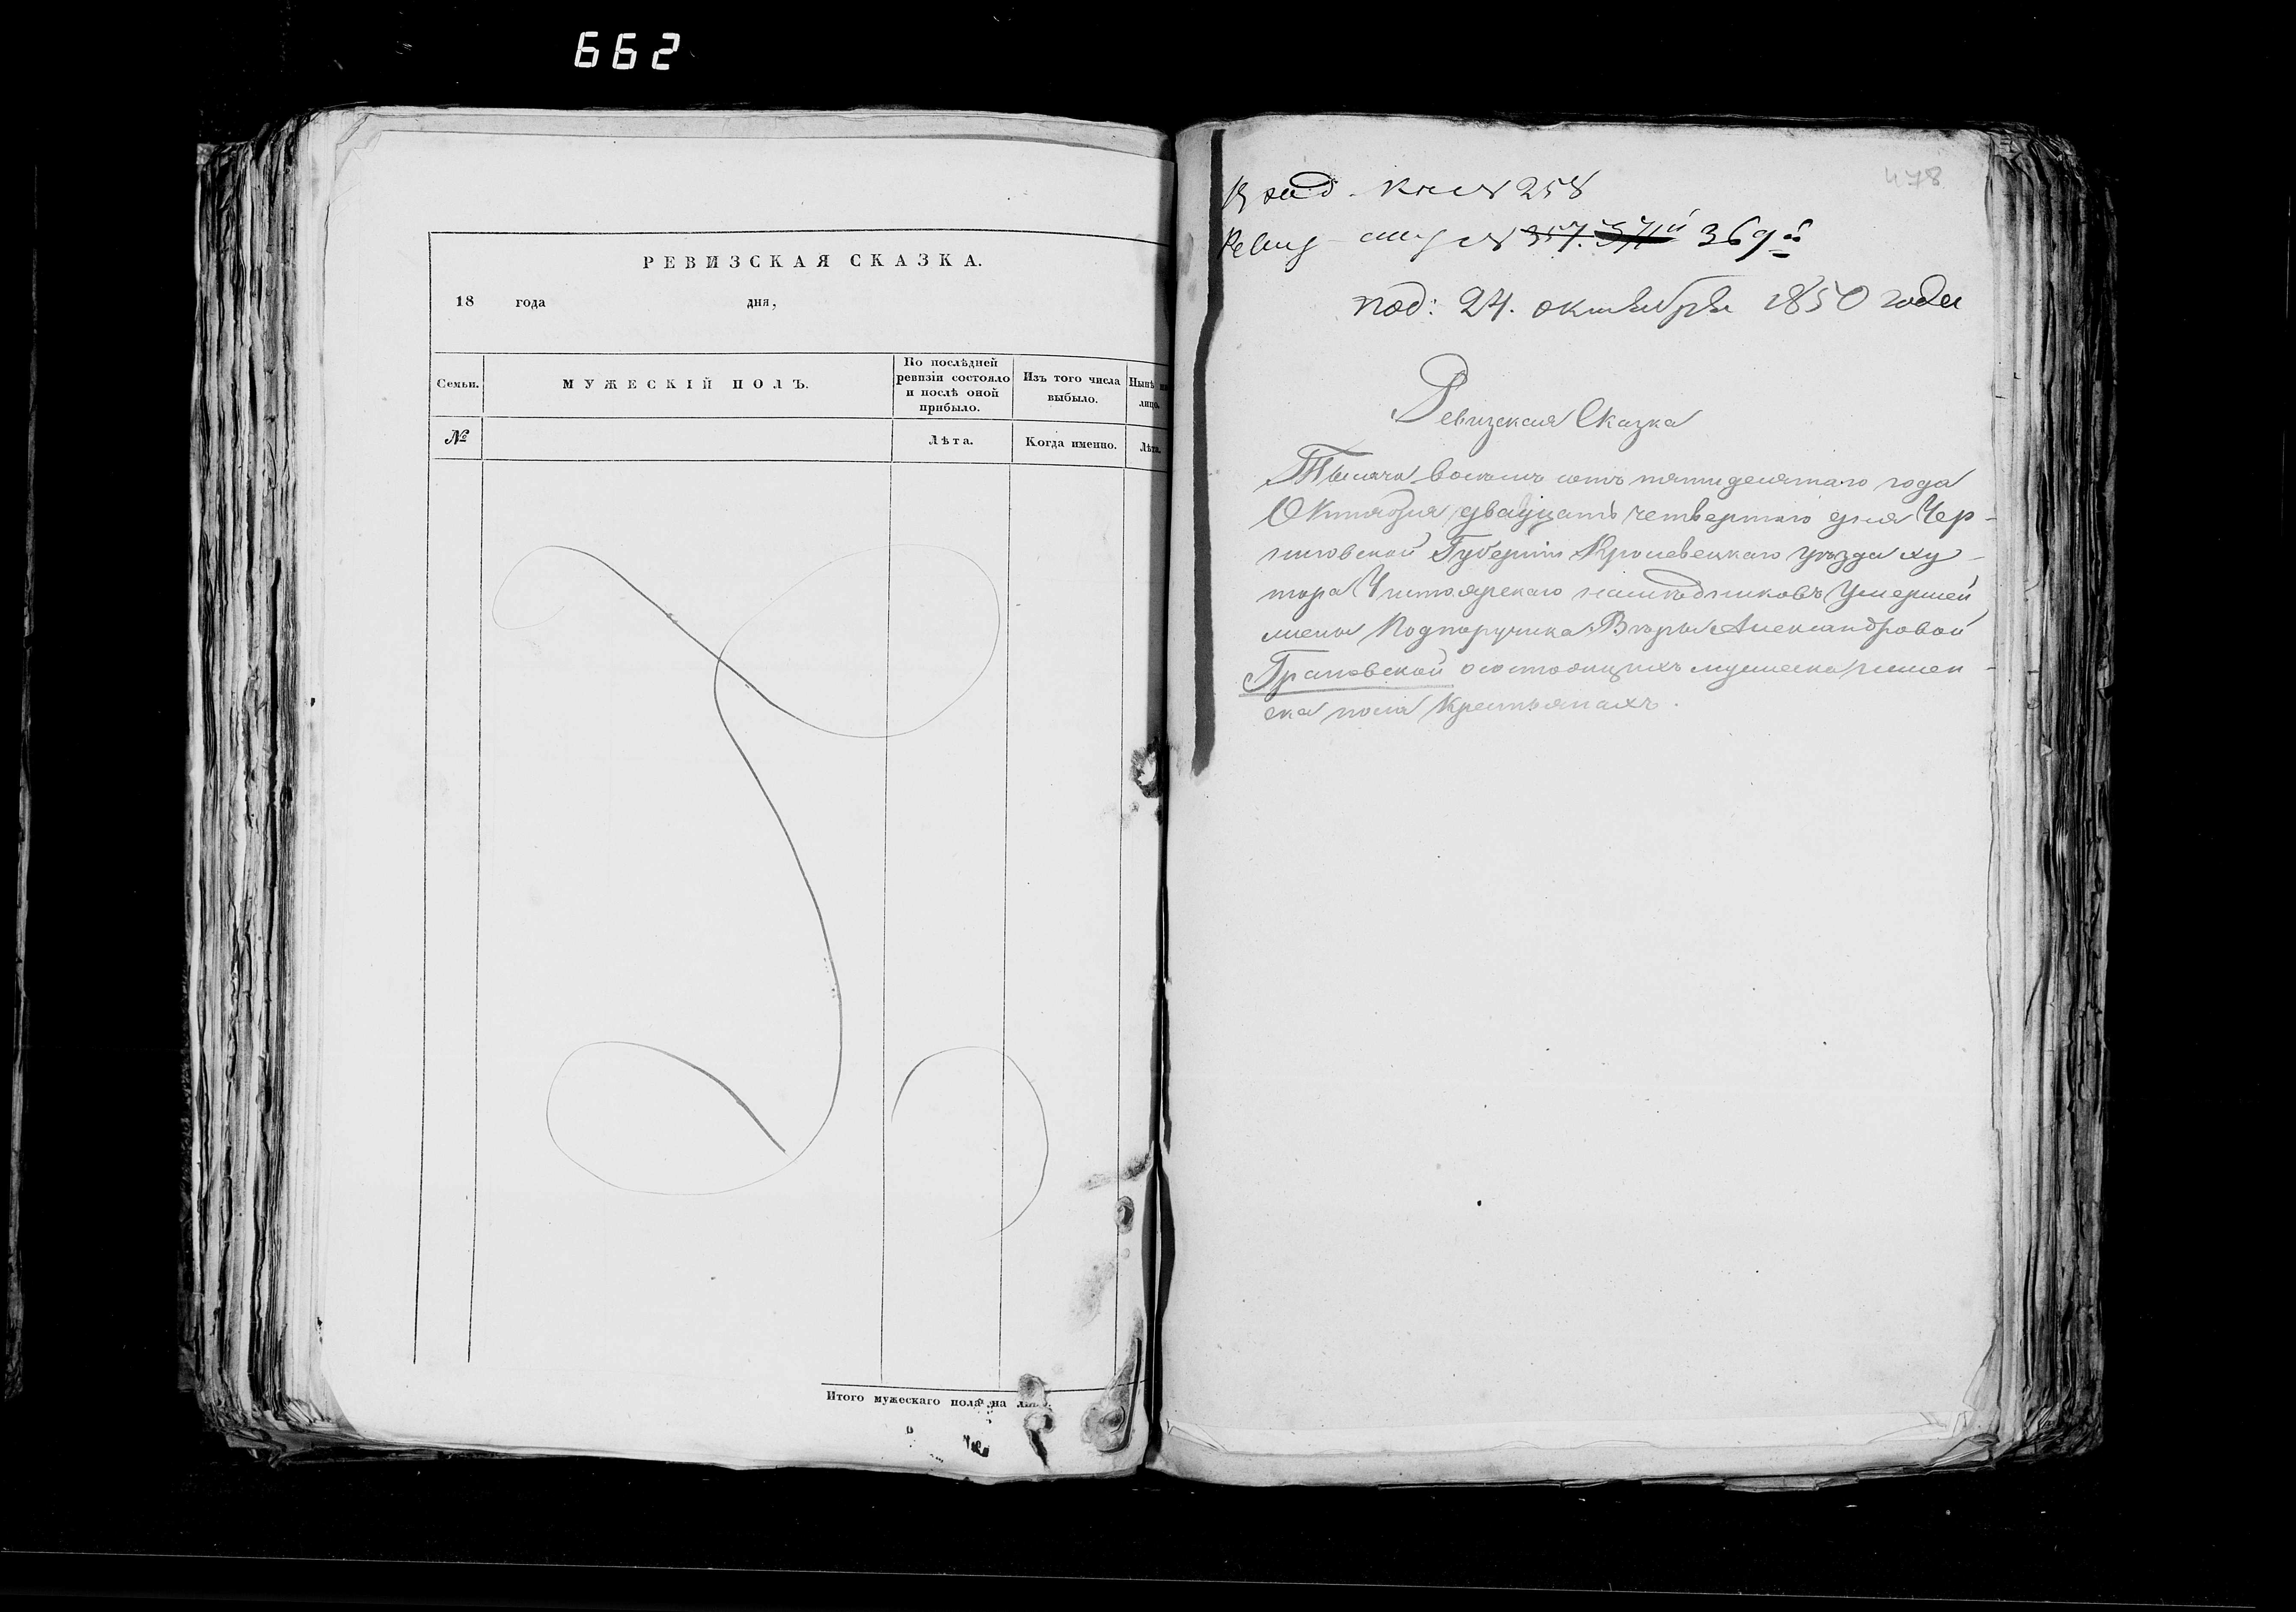 662
РЕВИЗСКАЯ СКАЗКА.
18 года дня,
Семьи.
МУЖЕСКІЙ ПОЛЪ.
По послѣдней ревизіи состояло и послѣ оной прибыло.
Изъ того числа выбыло.
Нынѣ на лицо.
№
Лѣта.
Когда именно.
Лѣта.
Итого мужескаго пола на
478
258
Ревиз 357. 369й
под: 24. октября 1850 года
Ревизская Сказка
Тысяча восемь сотъ пятидесятаго года
Октября двадцать четвертаго дня Чер-
ниговской Губерніи Кролевецкаго уѣзда ху-
тора Чистоярскаго наслѣдниковъ Умершей
жены Подпоручика Вѣры Александровой
Грановской о состоящихъ мужеска и женс-
ка пола Крестьянахъ.